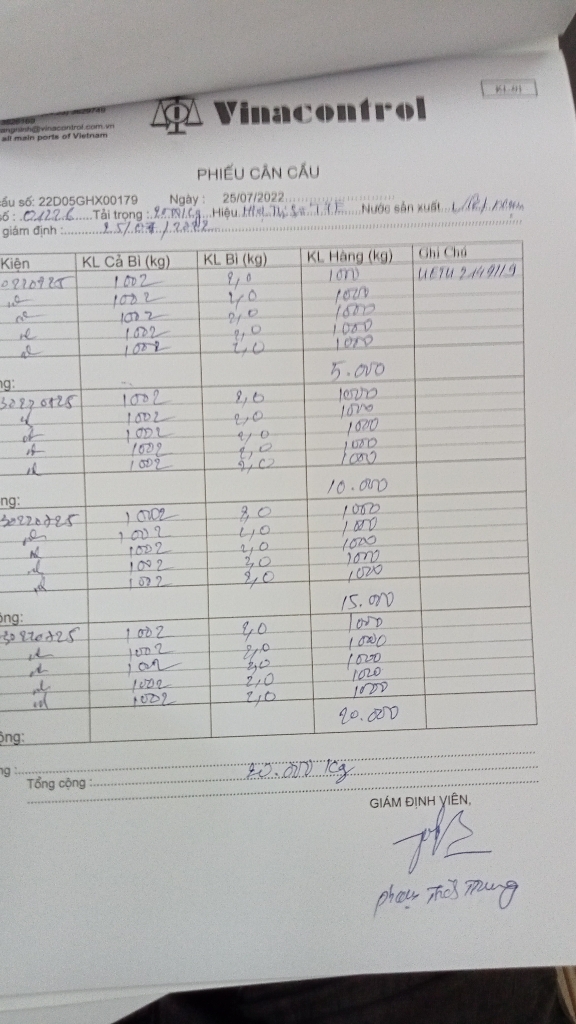 KL-01
Vinacontrol
@vinacontrol.com.vn
all main ports of Vietnam
PHIẾU CÂN CẨU
số: 22D05GHX00179 Ngày : 25/07/2022
Tải trọng : Hiệu Nước sản xuất
giám định : 25/07/2022
Kiện KL Cả Bì (kg) KL Bì (kg) KL Hàng (kg) Ghi Chú
0220725 1002 2,0 1000
nt 1002 2,0 1000
nt 1002 2,0 1000
nt 1002 2,0 1000
nt 1002 2,0 1000
ng: 5.000
30220725 1002 2,0 1000
nt 1002 2,0 1000
nt 1002 2,0 1000
nt 1002 2,0 1000
nt 1002 2,0 1000
ng: 10.000
30220725 1002 2,0 1000
nt 1002 2,0 1000
nt 1002 2,0 1000
nt 1002 2,0 1000
nt 1002 2,0 1000
ộng: 15.000
30220725 1002 2,0 1000
nt 1002 2,0 1000
nt 1002 2,0 1000
nt 1002 2,0 1000
nt 1002 2,0 1000
ộng: 20.000
ng :
Tổng cộng : 20.000 Kg
GIÁM ĐỊNH VIÊN,
Trung